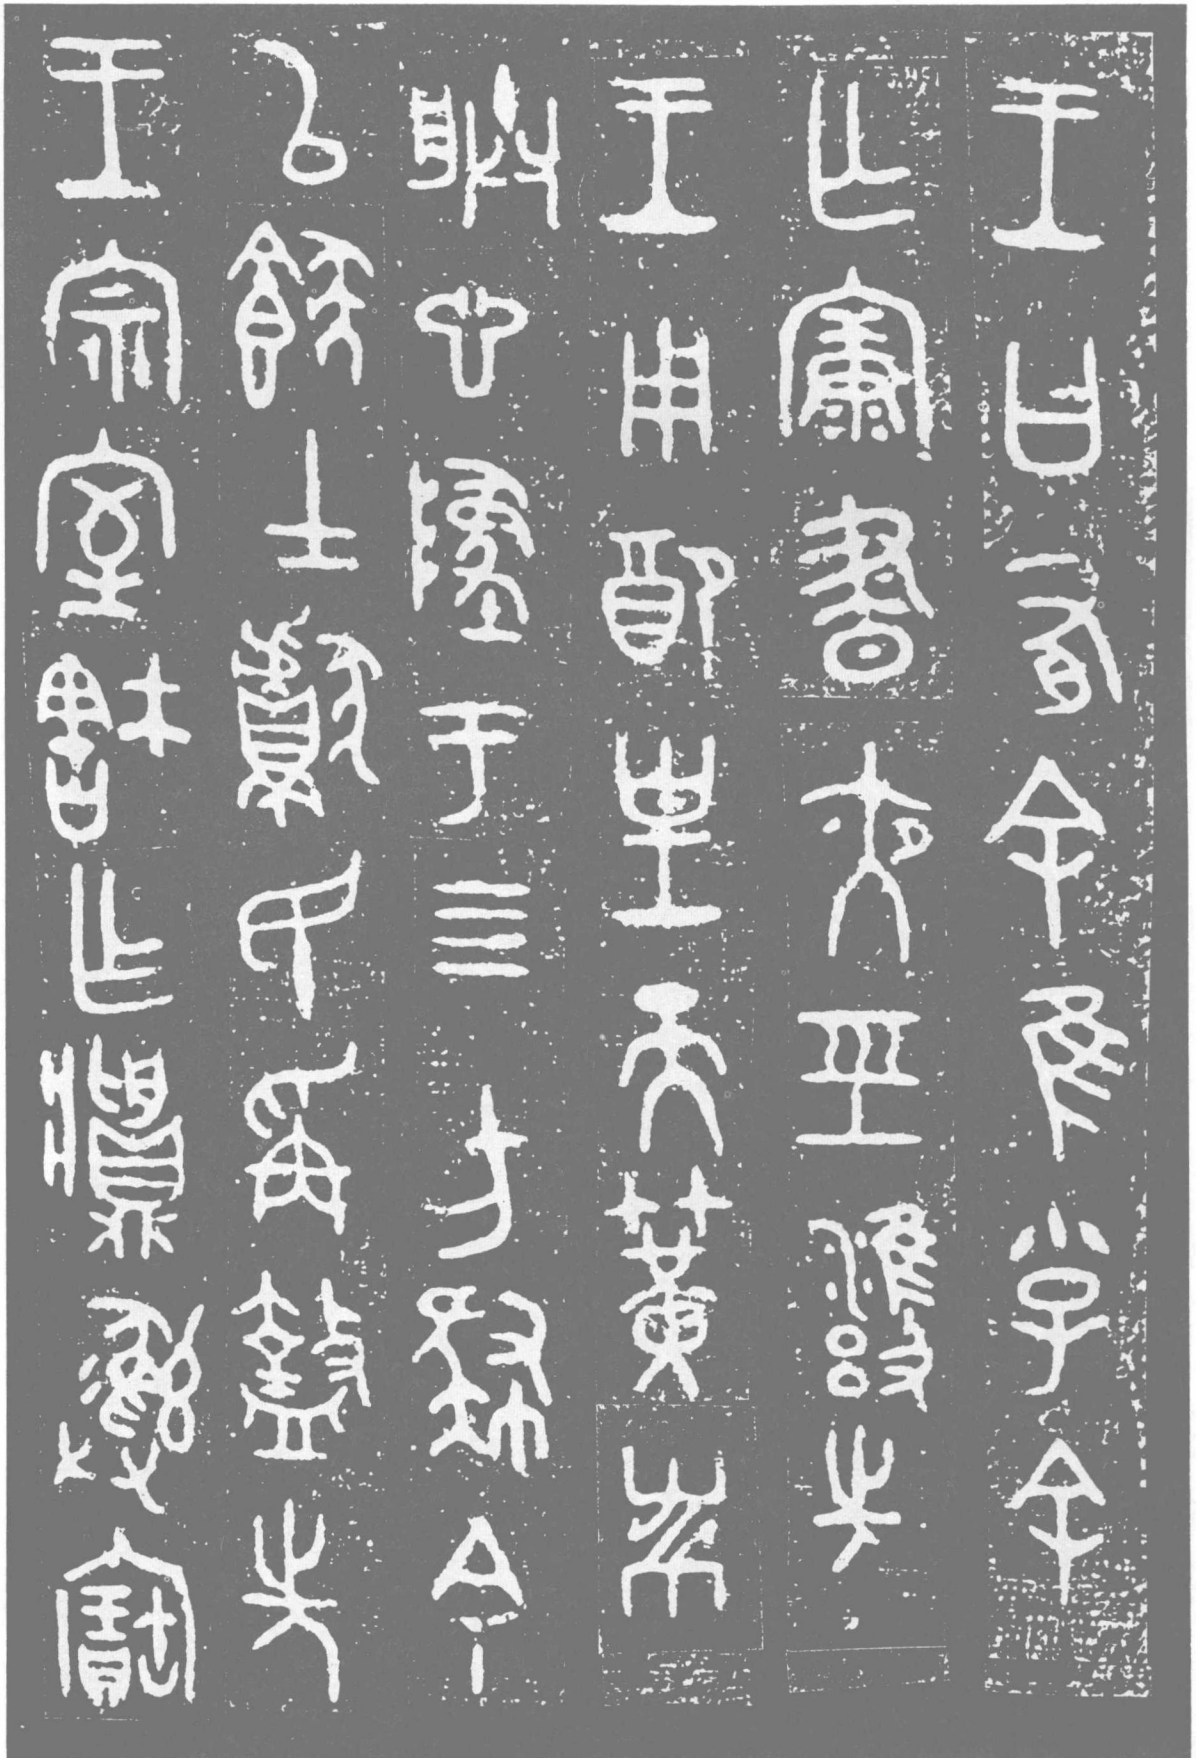 王曰有余隹小子余
亡康晝夜巠雝先
王用配皇天簧黹
朕心墜于四方肆余
以餗士獻民爯盩先
王宗室㝬乍䵼彝寶